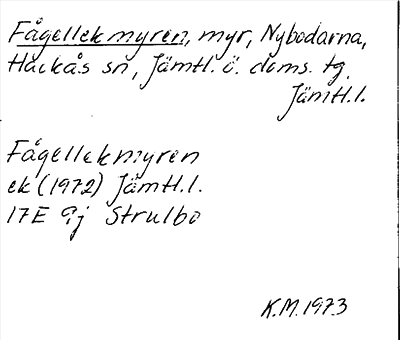 Fågellekmyren, myr, Nybodarna,
Hackås sn, Jämtl. ö. doms. tg.
Jämtl.l.
Fågellekmyren
ek (1972) Jämtl.l.
17E 9j Strulbo
K.M. 1973